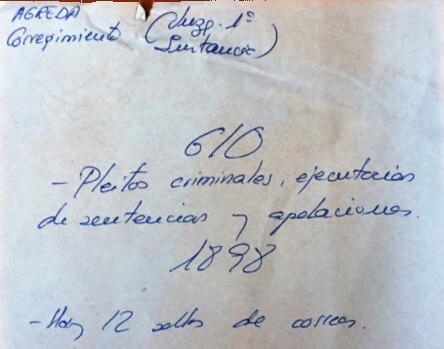 AGREDA (Juzg. 1ª
Corregimiento Instancia)
610
- Pleitos criminales, ejecutorias
de sentencias y apelaciones.
1898
- Hay 12 sellos de correos.